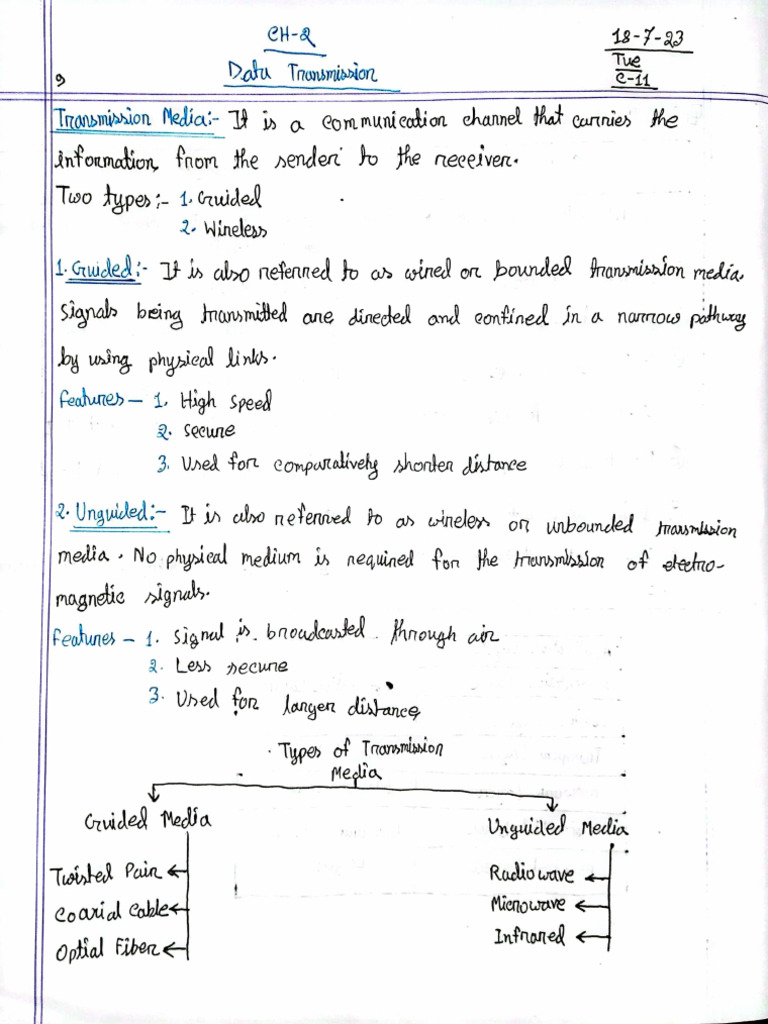 CH-2
18-7-23
Tue
C-11
9
Data Transmission
Transmission Media:- It is a communication channel that carries the
information from the sender to the receiver.
Two types:- 1. Guided
2. Wireless
1. Guided:- It is also referred to as wired or bounded transmission media.
Signals being transmitted are directed and confined in a narrow pathway
by using physical links.
Features — 1. High Speed
2. Secure
3. Used for comparatively shorter distance
2. Unguided:- It is also referred to as wireless or unbounded transmission
media. No physical medium is required for the transmission of electro-
magnetic signals.
Features — 1. Signal is broadcasted through air
2. Less secure
3. Used for larger distance
Types of Transmission
Media
Guided Media
Unguided Media
Twisted Pair
Radiowave
Coaxial Cable
Microwave
Optial Fiber
Infrared